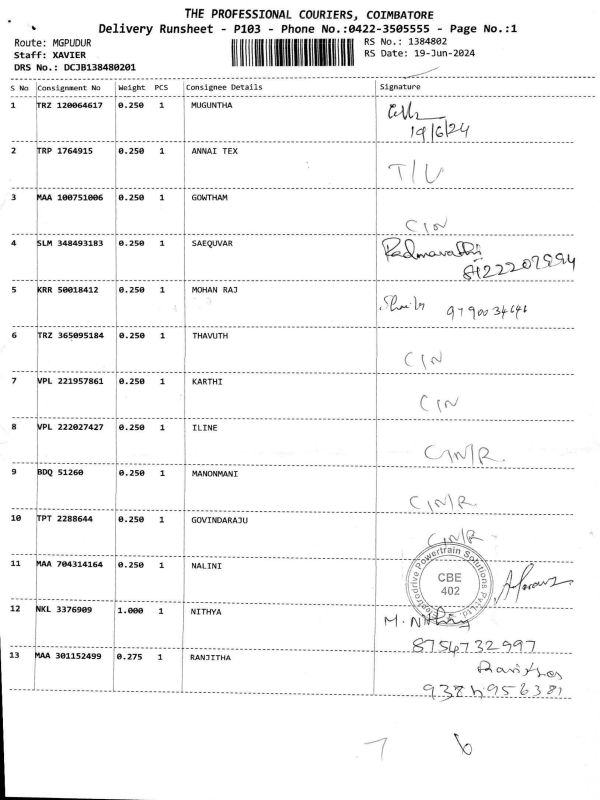 THE PROFESSIONAL COURIERS, COIMBATORE
Delivery Runsheet - P103 - Phone No.:0422-3505555 - Page No.:1
Route: MGPUDUR RS No.: 1384802
Staff: XAVIER RS Date: 19-Jun-2024
DRS No.: DCJB138480201
S No Consignment No Weight PCS Consignee Details Signature
1 TRZ 120064617 0.250 1 MUGUNTHA
19/6/24
2 TRP 1764915 0.250 1 ANNAI TEX
T/L
3 MAA 100751006 0.250 1 GOWTHAM
CIN
4 SLM 348493183 0.250 1 SAEQUVAR Padmavathi
5 KRR 50018412 0.250 1 MOHAN RAJ
6 TRZ 365095184 0.250 1 THAVUTH
CIN
7 VPL 221957861 0.250 1 KARTHI
CIN
8 VPL 222027427 0.250 1 ILINE
CIN/R.
9 BDQ 51260 0.250 1 MANONMANI
CIN/R
10 TPT 2288644 0.250 1 GOVINDARAJU
CIN/R
11 MAA 704314164 0.250 1 NALINI
Powertrain Solutions
CBE
402
12 NKL 3376909 1.000 1 NITHYA M. Nithya
8754732997
13 MAA 301152499 0.275 1 RANJITHA
7 6